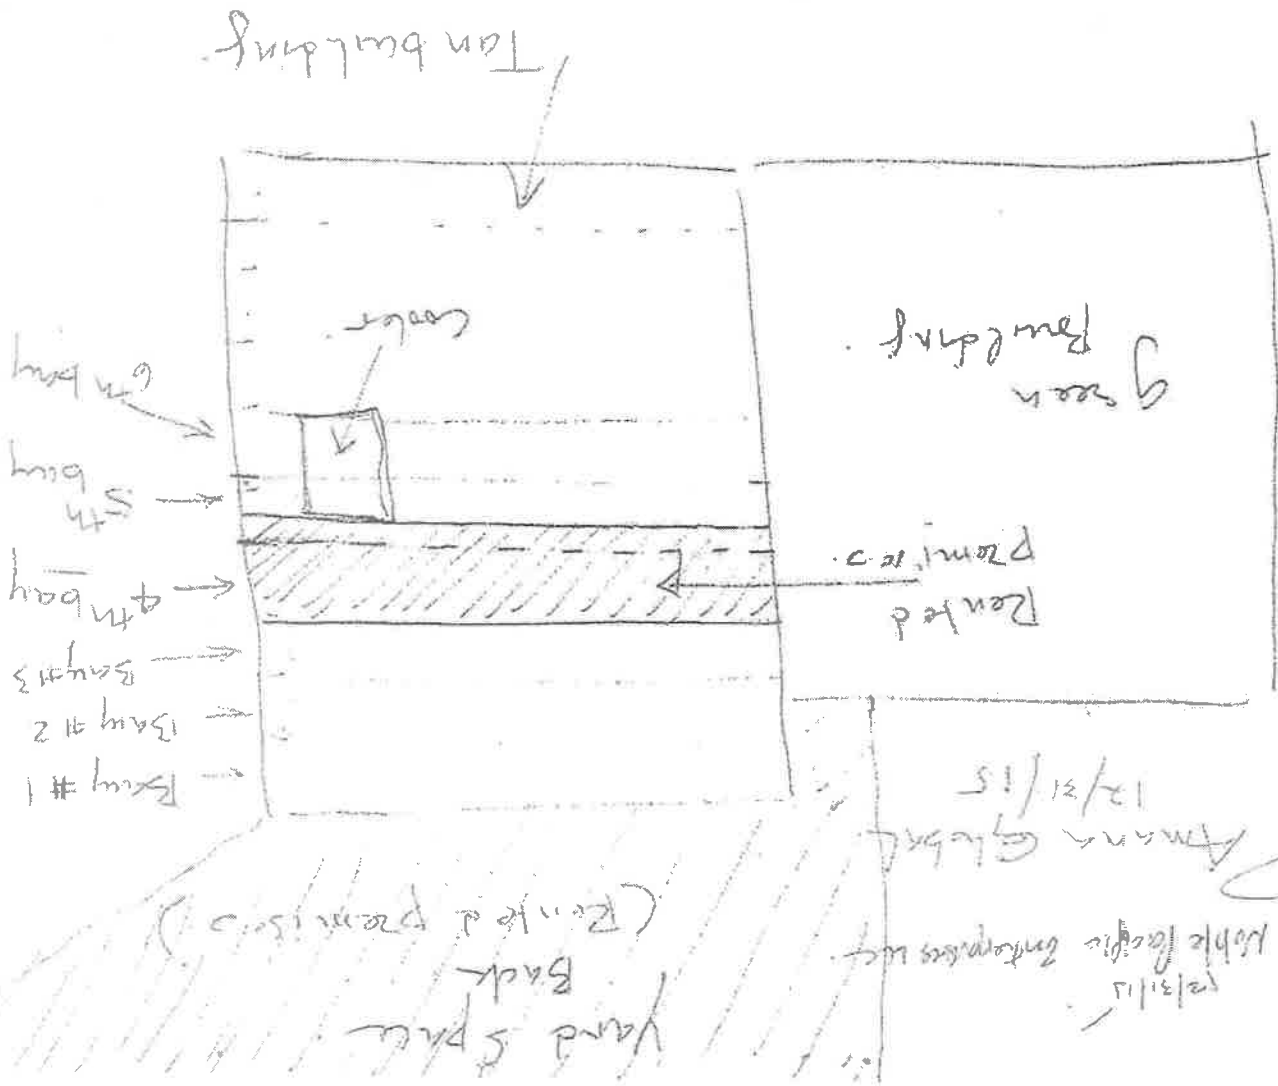 12/31/15
Noble Pacific Enterprises LLC
Amana Global
12/31/15
Yard Space
Back
(Rented premises)
Bay #1
Bay #2
Bay #3
4th bay
5th
bay
6th bay
Rented
premises.
green
Building.
Cooler
Tan building.